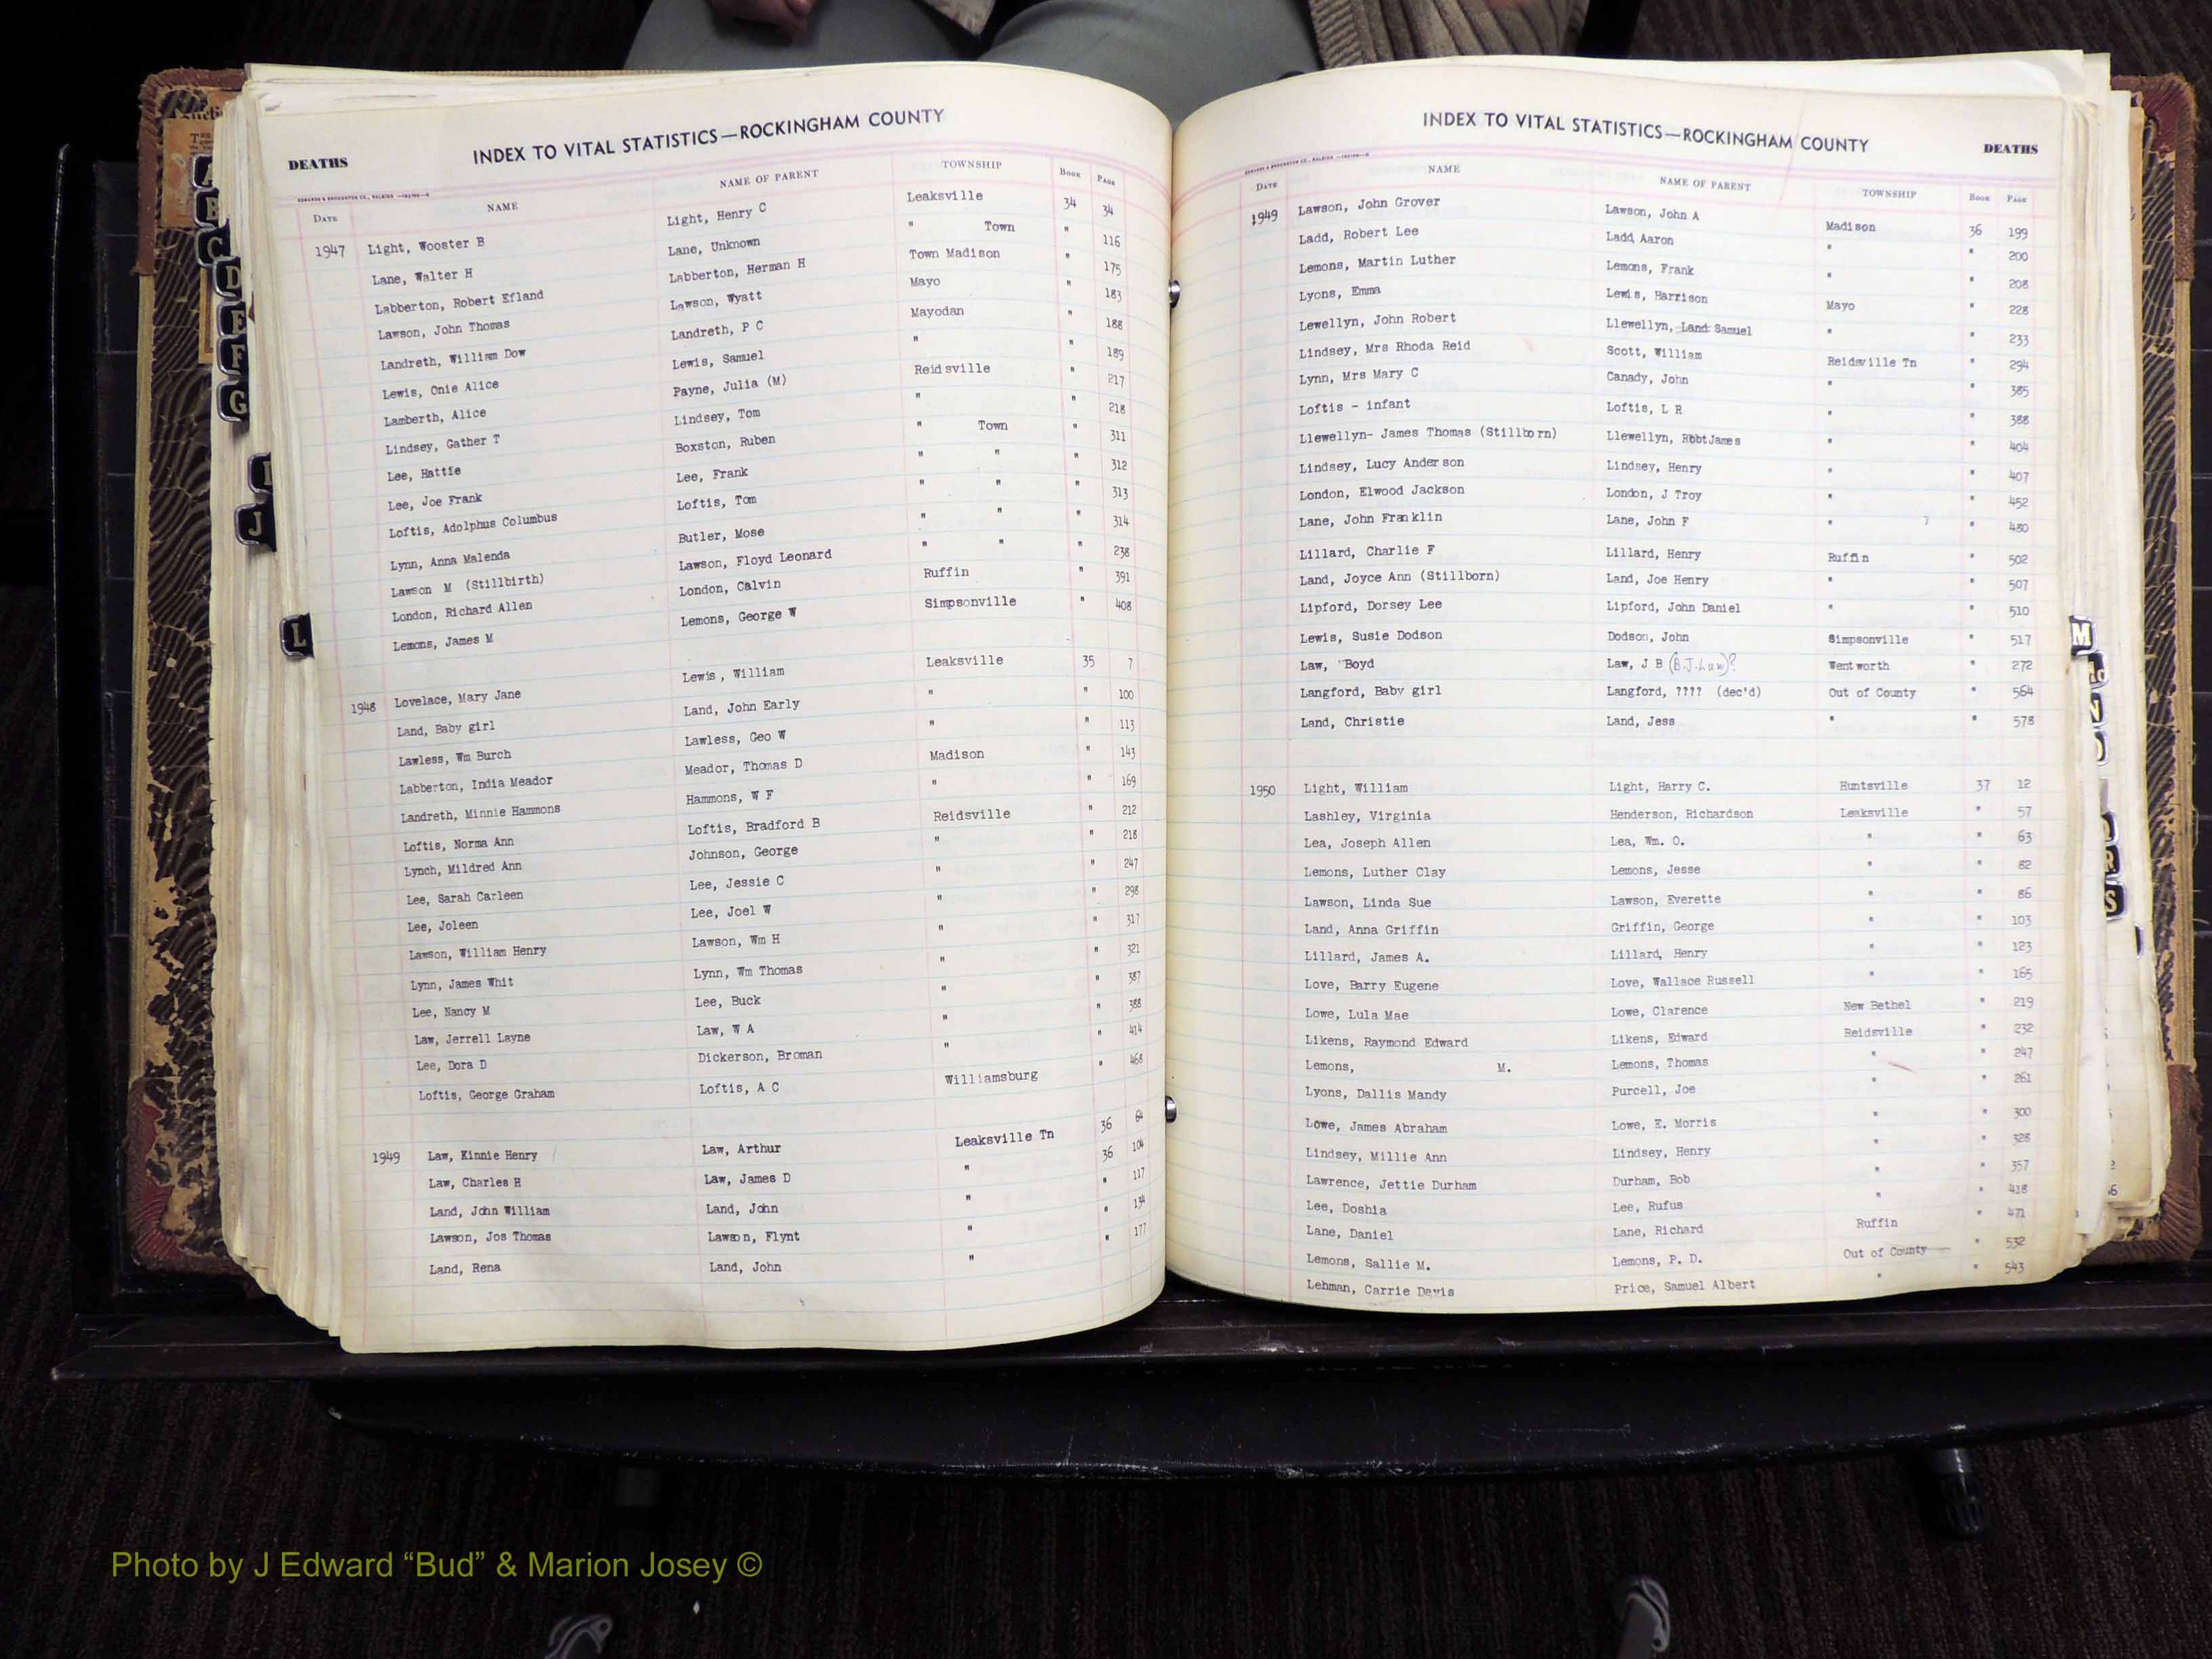 INDEX TO VITAL STATISTICS—ROCKINGHAM COUNTY
DEATHS
DATE NAME NAME OF PARENT TOWNSHIP BOOK PAGE
1947 Light, Wooster B Light, Henry C Leaksville 34 34
Lane, Walter H Lane, Unknown " Town " 116
Labberton, Robert Efland Labberton, Herman H Town Madison " 175
Lawson, John Thomas Lawson, Wyatt Mayo " 183
Landreth, William Dow Landreth, P C Mayodan " 188
Lewis, Onie Alice Lewis, Samuel " " 189
Lamberth, Alice Payne, Julia (M) Reidsville " 217
Lindsey, Gather T Lindsey, Tom " " 218
Lee, Hattie Boxston, Ruben " Town " 311
Lee, Joe Frank Lee, Frank " " " 312
Loftis, Adolphus Columbus Loftis, Tom " " " 313
Lynn, Anna Malenda Butler, Mose " " " 314
Lawson M (Stillbirth) Lawson, Floyd Leonard " " " 238
London, Richard Allen London, Calvin Ruffin " 391
Lemons, James M Lemons, George W Simpsonville " 408
1948 Lovelace, Mary Jane Lewis, William Leaksville 35 7
Land, Baby girl Land, John Early " " 100
Lawless, Wm Burch Lawless, Geo W " " 113
Labberton, India Meador Meador, Thomas D Madison " 143
Landreth, Minnie Hammons Hammons, W F " " 169
Loftis, Norma Ann Loftis, Bradford B Reidsville " 212
Lynch, Mildred Ann Johnson, George " " 218
Lee, Sarah Carleen Lee, Jessie C " " 247
Lee, Joleen Lee, Joel W " " 298
Lawson, William Henry Lawson, Wm H " " 317
Lynn, James Whit Lynn, Wm Thomas " " 321
Lee, Nancy M Lee, Buck " " 387
Law, Jerrell Layne Law, W A " " 388
Lee, Dora D Dickerson, Broman " " 414
Loftis, George Graham Loftis, A C Williamsburg " 468
1949 Law, Kinnie Henry Law, Arthur Leaksville Tn 36 64
Law, Charles H Law, James D " 36 104
Land, John William Land, John " " 117
Lawson, Jos Thomas Lawson, Flynt " " 134
Land, Rena Land, John " " 177
INDEX TO VITAL STATISTICS—ROCKINGHAM COUNTY
DEATHS
DATE NAME NAME OF PARENT TOWNSHIP BOOK PAGE
1949 Lawson, John Grover Lawson, John A Madison 36 199
Ladd, Robert Lee Ladd Aaron " " 200
Lemons, Martin Luther Lemons, Frank " " 208
Lyons, Emma Lewis, Harrison Mayo " 228
Lewellyn, John Robert Llewellyn, Land Samuel " " 233
Lindsey, Mrs Rhoda Reid Scott, William Reidsville Tn " 294
Lynn, Mrs Mary C Canady, John " " 385
Loftis - infant Loftis, L R " " 388
Llewellyn- James Thomas (Stillborn) Llewellyn, Robt James " " 404
Lindsey, Lucy Anderson Lindsey, Henry " " 407
London, Elwood Jackson London, J Troy " " 452
Lane, John Franklin Lane, John F " " 480
Lillard, Charlie F Lillard, Henry Ruffin " 502
Land, Joyce Ann (Stillborn) Land, Joe Henry " " 507
Lipford, Dorsey Lee Lipford, John Daniel " " 510
Lewis, Susie Dodson Dodson, John Simpsonville " 517
Law, Boyd Law, J B (B.J. Law)? Wentworth " 272
Langford, Baby girl Langford, ???? (dec'd) Out of County " 564
Land, Christie Land, Jess " " 578
1950 Light, William Light, Harry C. Huntsville 37 12
Lashley, Virginia Henderson, Richardson Leaksville " 57
Lea, Joseph Allen Lea, Wm. O. " " 63
Lemons, Luther Clay Lemons, Jesse " " 82
Lawson, Linda Sue Lawson, Everette " " 86
Land, Anna Griffin Griffin, George " " 103
Lillard, James A. Lillard, Henry " " 123
Love, Barry Eugene Love, Wallace Russell " " 165
Lowe, Lula Mae Lowe, Clarence New Bethel " 219
Likens, Raymond Edward Likens, Edward Reidsville " 232
Lemons, M. Lemons, Thomas " " 247
Lyons, Dallis Mandy Purcell, Joe " " 261
Lowe, James Abraham Lowe, E. Morris " " 300
Lindsey, Millie Ann Lindsey, Henry " " 328
Lawrence, Jettie Durham Durham, Bob " " 357
Lee, Doshia Lee, Rufus " " 418
Lane, Daniel Lane, Richard Ruffin " 471
Lemons, Sallie M. Lemons, P. D. Out of County " 532
Lehman, Carrie Davis Price, Samuel Albert " " 543
A
B
C
D
E
F
G
J
L
M
N
R
S
Photo by J Edward “Bud” & Marion Josey ©